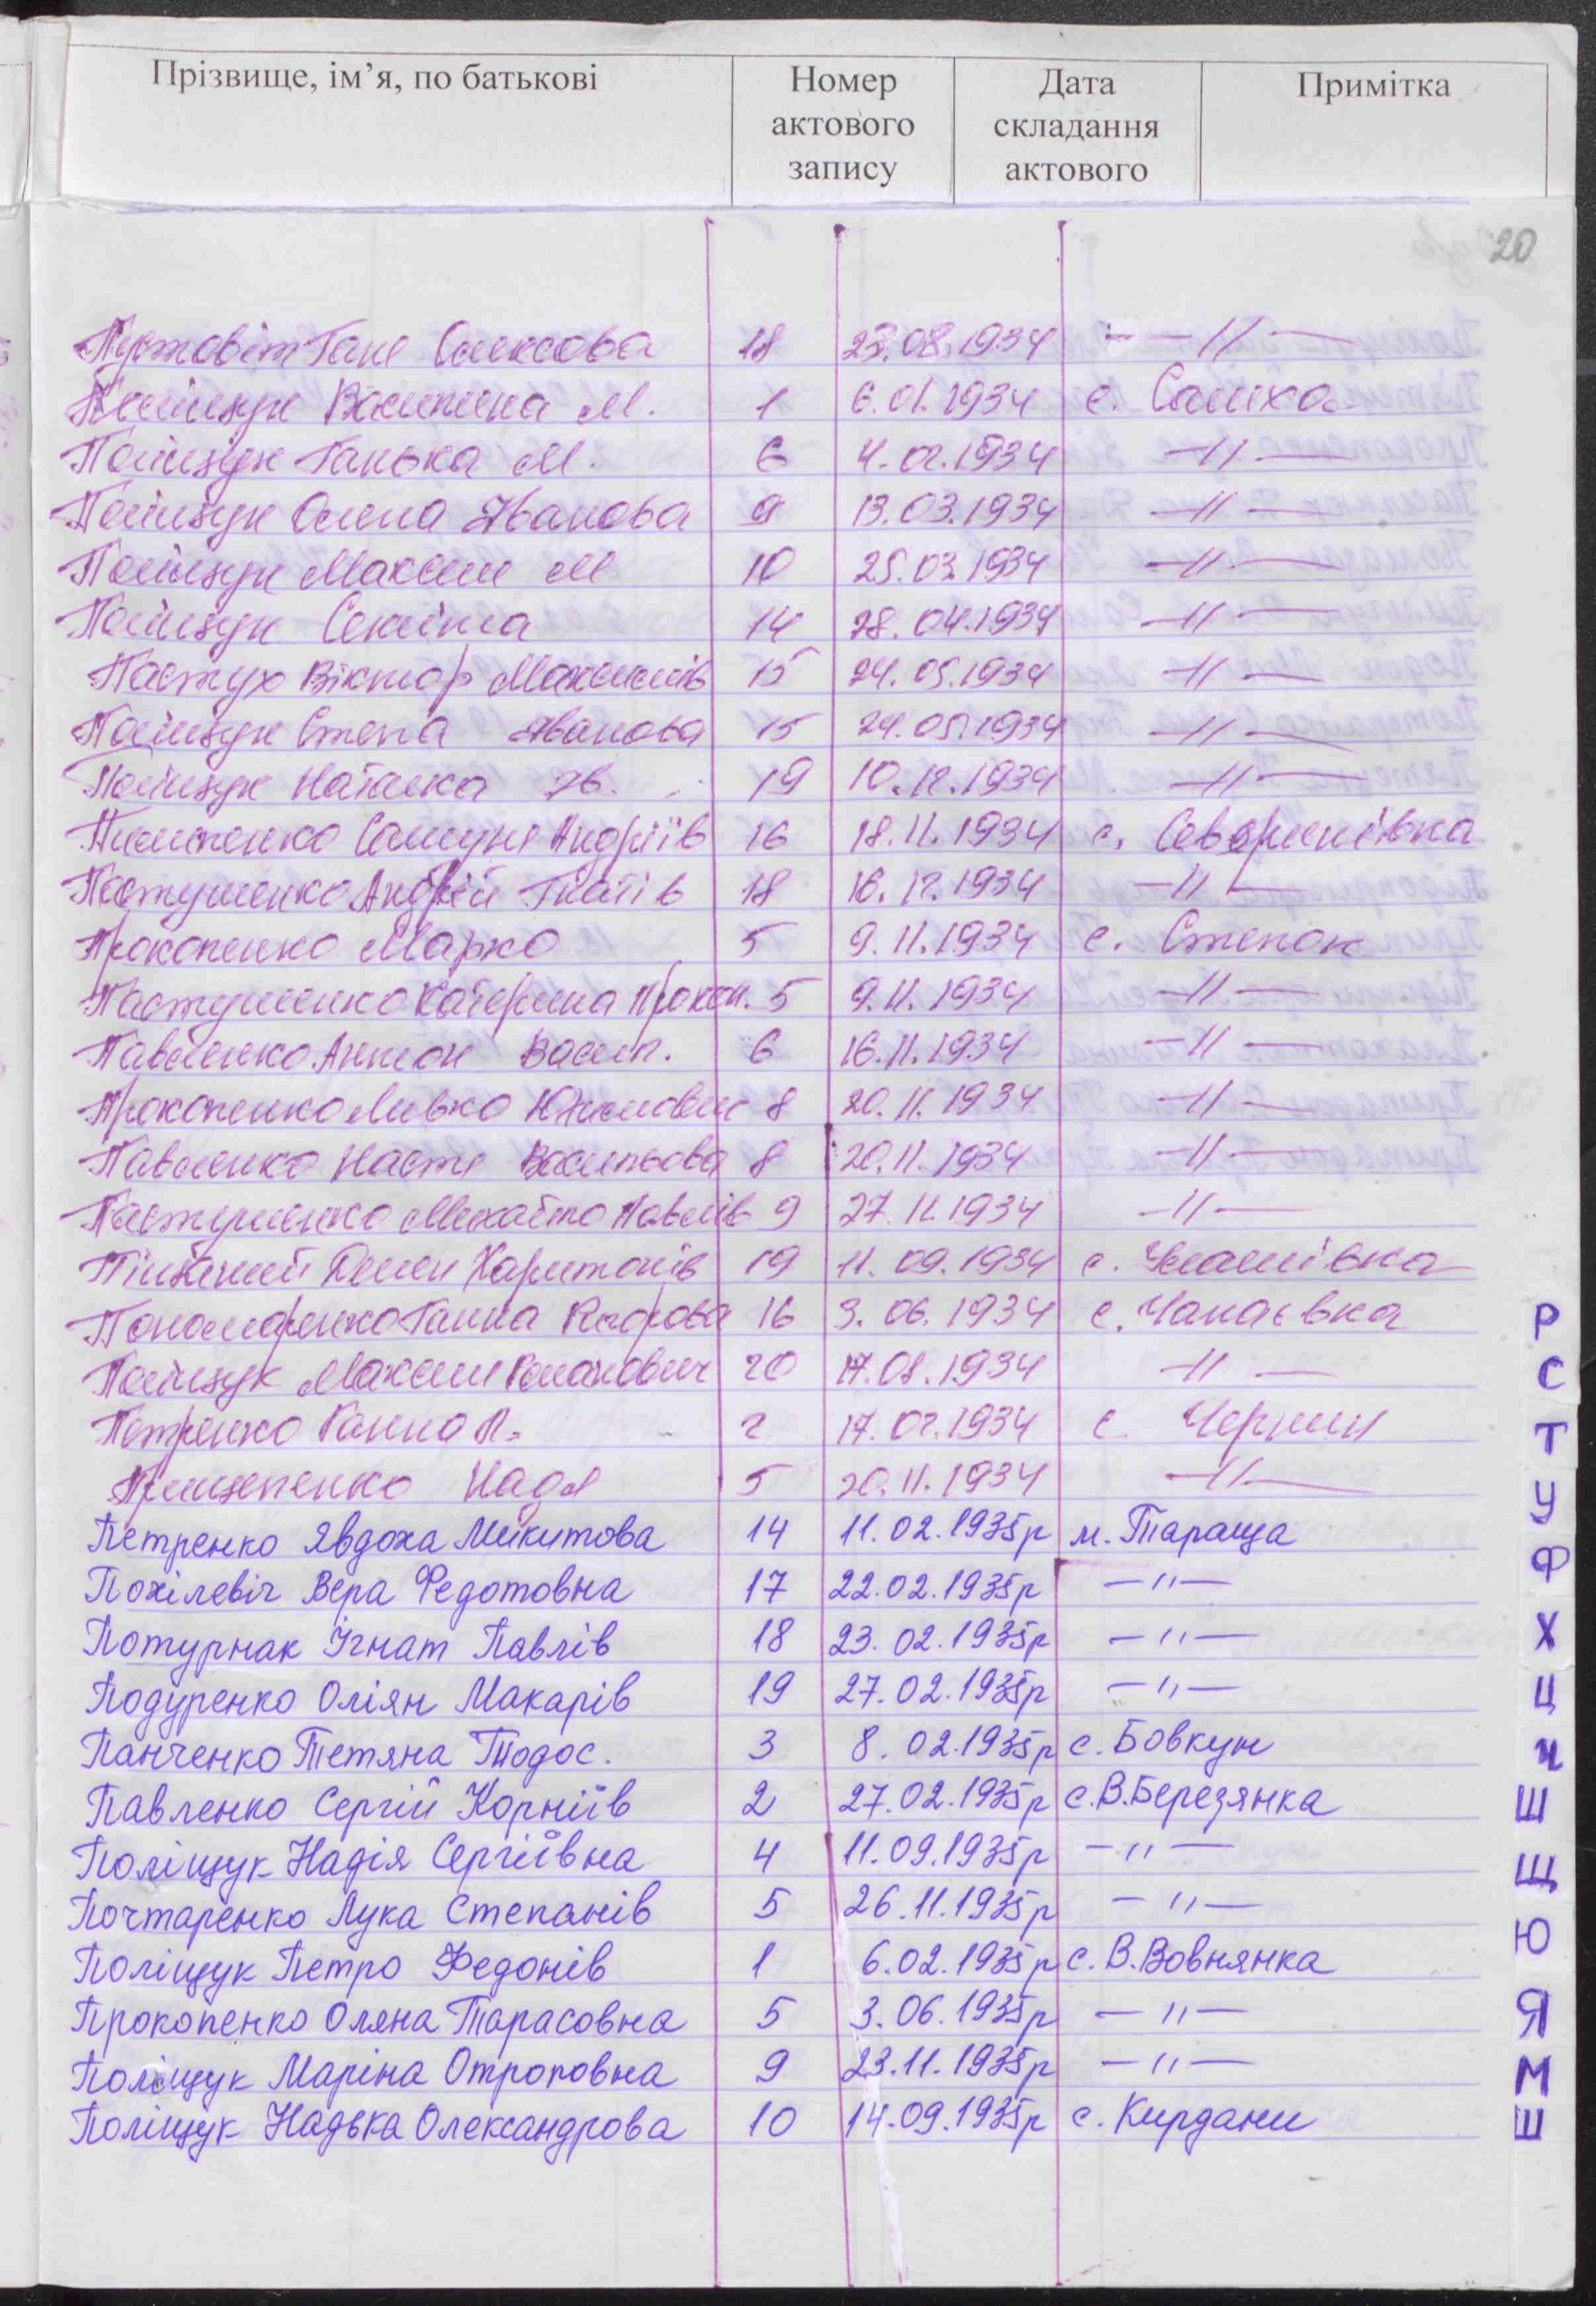 Прізвище, ім’я, по батькові Номер актового запису Дата складання актового Примітка
20
Пустовіт Ганя Олексова 18 23.08.1934 — — // —
Поліщук Василина М. 1 6.01.1934 с. Салиха
Поліщук Ганька М. 6 4.02.1934 — // —
Поліщук Олена Іванова 9 13.03.1934 — // —
Поліщук Максим М 10 25.03.1934 — // —
Поліщук Секлета 14 28.04.1934 — // —
Пастух Віктор Максимів 15 24.05.1934 — // —
Поліщук Степа Іванова 15 24.05.1934 — // —
Поліщук Наталка Ів. 19 10.12.1934 — // —
Пилипенко Самуил Андріїв 16 18.11.1934 с. Северинівка
Пастушенко Андрій Гнатів 18 16.12.1934 — // —
Прокопенко Марко 5 9.11.1934 с. Степок
Пастушенко Катерина Прокоп. 5 9.11.1934 — // —
Павленко Антон Васил. 6 16.11.1934 — // —
Прокопенко Левко Юхимович 8 20.11.1934 — // —
Павленко Настя Васильова 8 20.11.1934 — // —
Пастушенко Михайло Павлів 9 27.11.1934 — // —
Демен Харитонів 19 11.09.1934 с. Улашівка
Пономаренко Ганна 16 3.06.1934 с. Чапаєвка
Поліщук Максим Романович 20 17.08.1934 — // —
Петренко Ганна П. 2 17.02.1934 с Чернин
Прищепенко Надя 5 20.11.1934 — // —
Петренко Явдоха Микитова 14 11.02.1935р м. Тараща
Похілевіч Вера Федотовна 17 22.02.1935р — // —
Потурнак Ігнат Павлів 18 23.02.1935р — // —
Подуренко Оліян Макарів 19 27.02.1935р — // —
Панченко Тетяна Тодос. 3 8.02.1935р с. Бовкун
Павленко Сергій Корніїв 2 27.02.1935р с. В.Березянка
Поліщук Надія Сергіївна 4 11.09.1935р — // —
Почтаренко Лука Степанів 5 26.11.1935р — // —
Поліщук Петро Федонів 1 6.02.1935р с. В.Вовнянка
Прокопенко Оляна Тарасовна 5 3.06.1935р — // —
Поліщук Маріна Отроповна 9 23.11.1935р — // —
Поліщук Надька Олександрова 10 14.09.1935р с. Кирдани
Р
С
Т
У
Ф
Х
Ц
Ч
Ш
Щ
Ю
Я
М
Ш